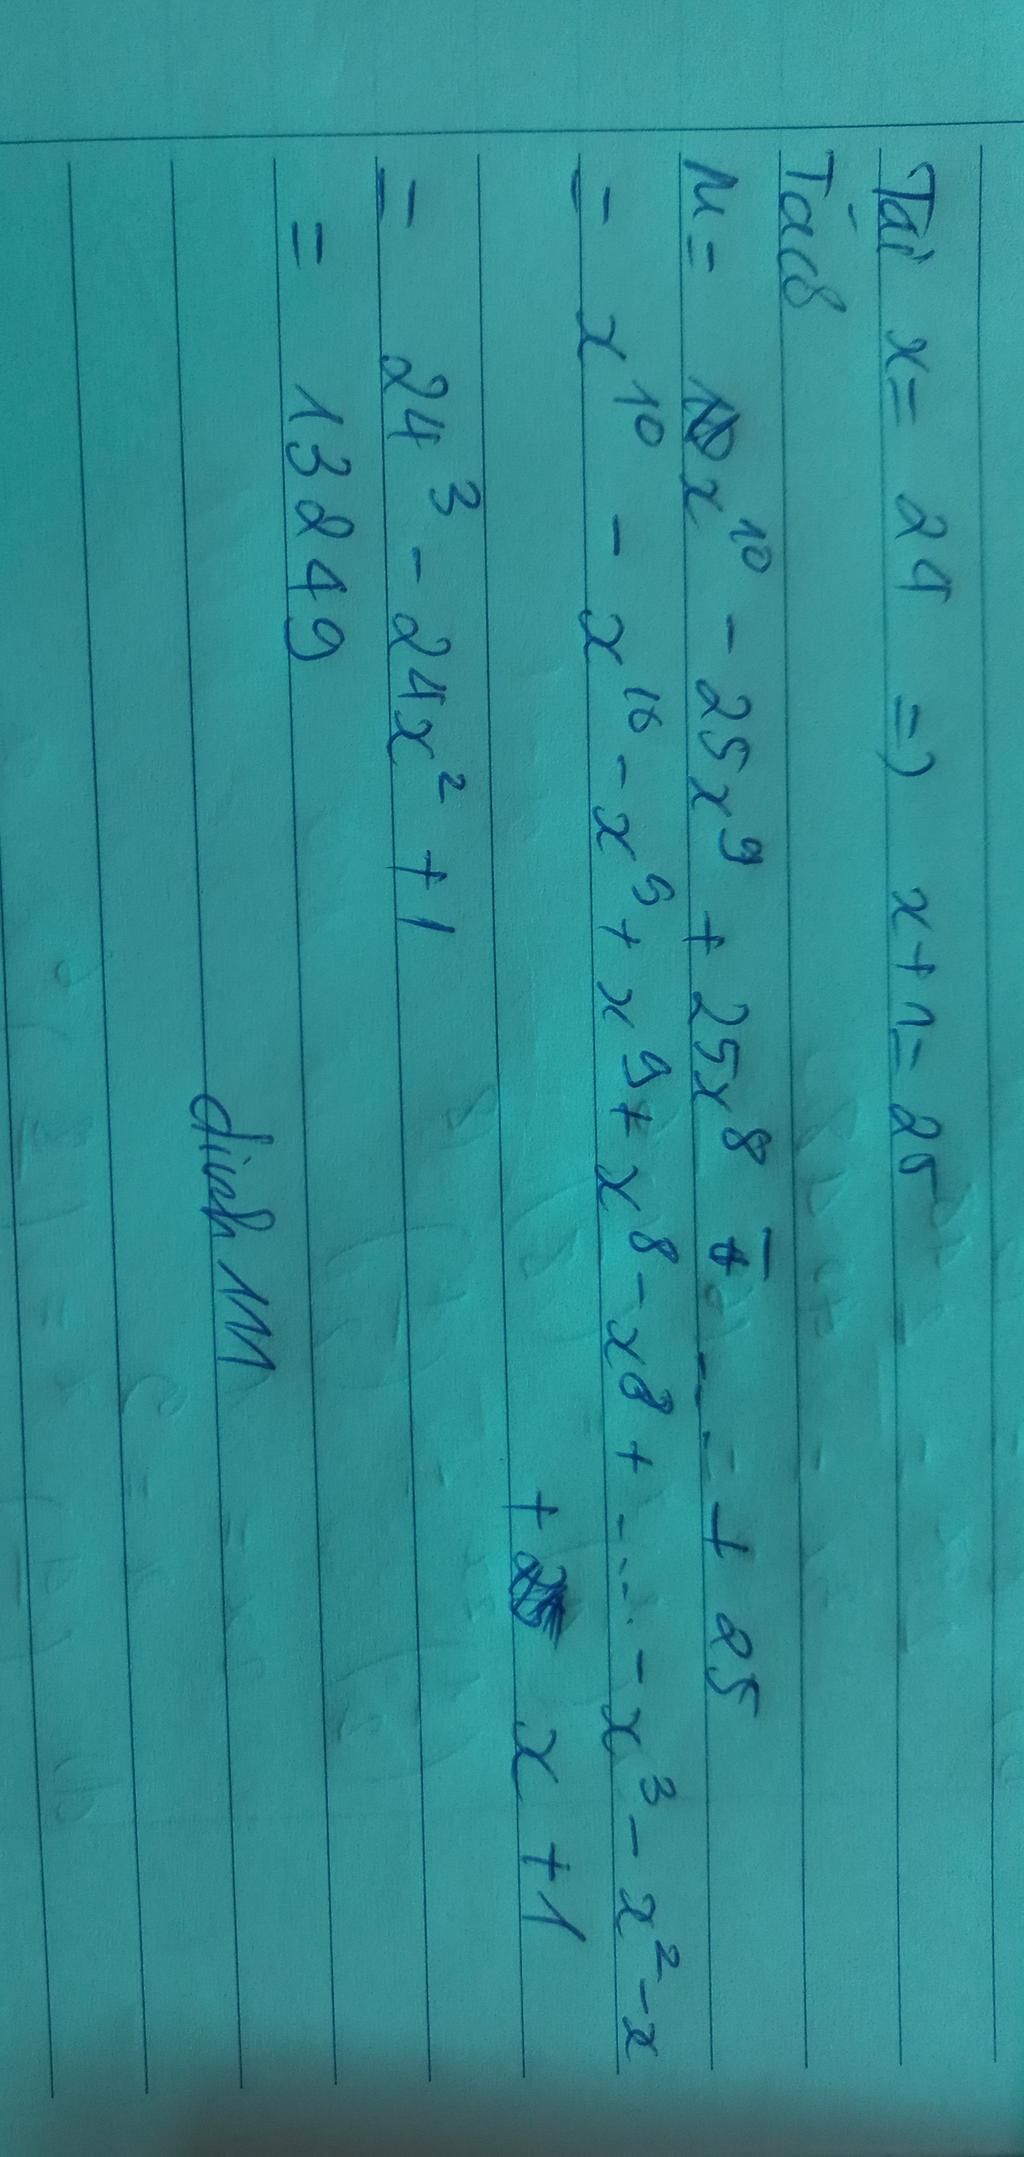 Tại x = 24 => x + 1 = 25
Ta có
M = x¹⁰ - 25x⁹ + 25x⁸ - ... + 25
= x¹⁰ - x¹⁰ - x⁹ + x⁹ + x⁸ - x⁸ + .... - x³ - x² - x
+ x + 1
= 24³ - 24x² + 1
= 13249
dinh 111